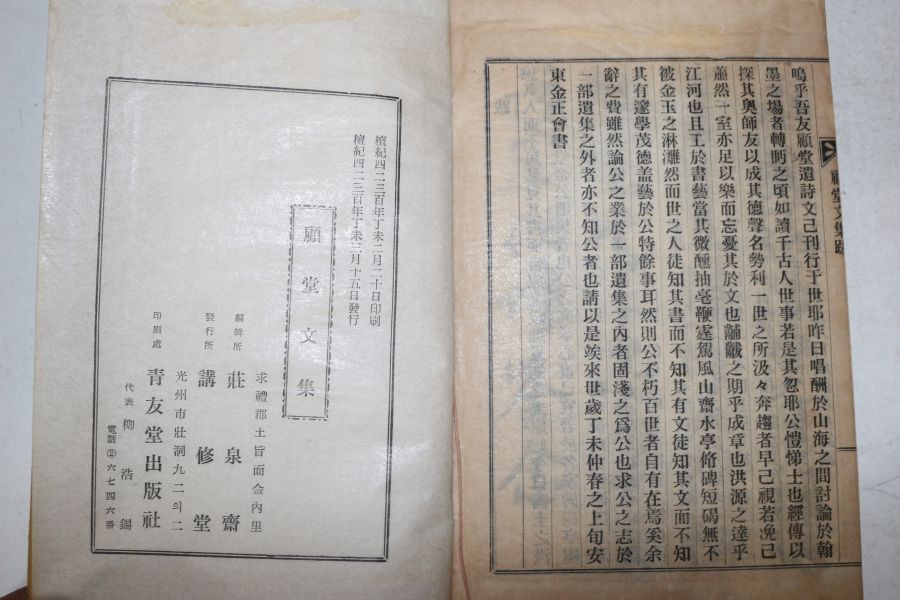 顧堂文集跋
嗚乎吾友顧堂遺詩文己刊行于世耶昨日唱酬於山海之間討論於翰
墨之場者轉眄之頃如讀千古人世事若是其忽耶公愷悌士也經傳以
探其奧師友以成其德聲名勢利一世之所汲々奔趨者早己視若浼己
蕭然一室亦足以樂而忘憂其於文也黼黻之期乎成章也洪源之達乎
江河也且工於書藝當其微醺抽毫鞭霆駕風山齋水亭脩碑短碣無不
被金玉之淋灕然而世之人徒知其書而不知其有文徒知其文而不知
其有邃學茂德盖藝於公特餘事耳然則公不朽百世者自有在焉奚余
辭之費雖然論公之業於一部遺集之內者固淺之爲公也求公之志於
一部遺集之外者亦不知公者也請以是竢來世歲丁未仲春之上旬安
東金正會書
檀紀四二三百年丁未二月二十日印刷
檀紀四二三百年丁未三月十五日發行
顧堂文集
求禮郡土旨面金內里
編輯所 莊泉齋
光州市壯洞九二의二
發行所 講修堂
印刷處 青友堂出版社
代表 柳浩錫
電話②六七四六番